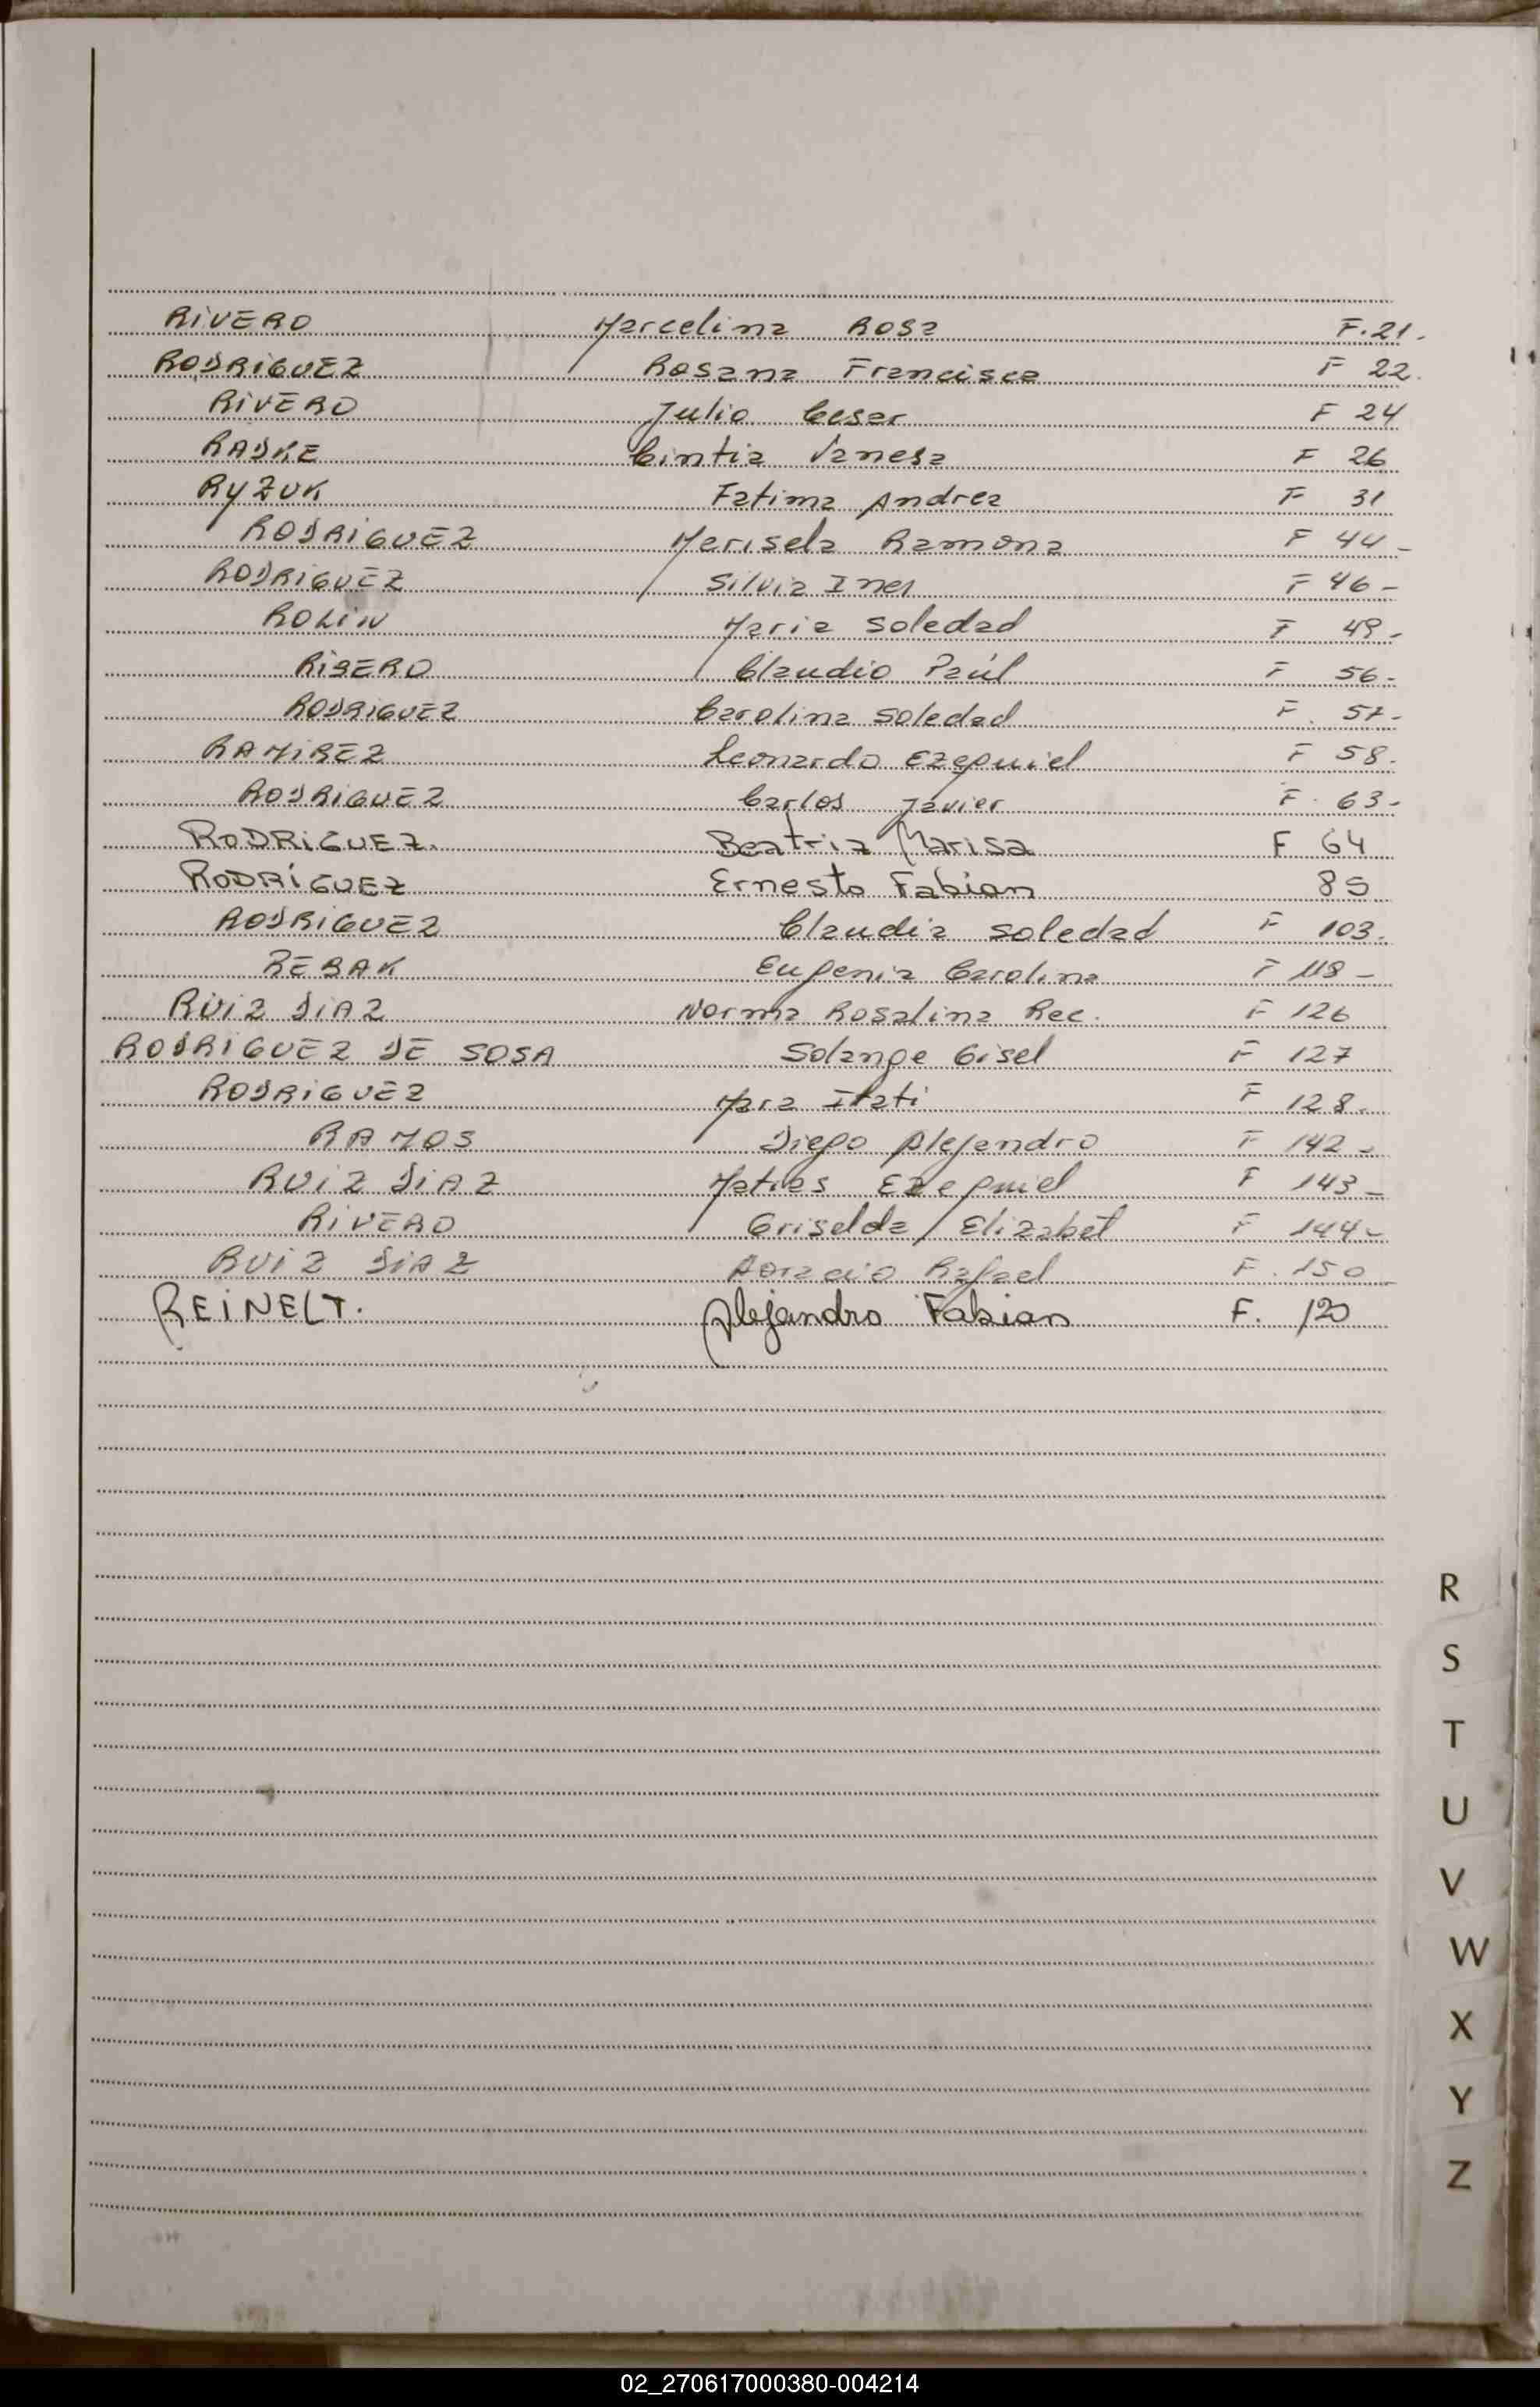 RIVERO Marcelina Rosa F. 21.
RODRIGUEZ Rosana Francisca F 22.
RIVERO Julio Cesar F 24
RADKE Cintia Vanesa F 26
RYZUK Fatima Andrea F 31
RODRIGUEZ Marisela Ramona F 44-
RODRIGUEZ Silvia Ines F 46-
ROLIN Maria Soledad F 49-
RISERO Claudio Paúl F 56-
RODRIGUEZ Carolina Soledad F. 57-
RAMIREZ Leonardo Ezequiel F 58.
RODRIGUEZ Carlos Javier F. 63-
RODRIGUEZ. Beatriz Marisa F 64
RODRÍGUEZ Ernesto Fabian 85
RODRIGUEZ Claudia Soledad F 103.
REBAK Eugenia Carolina F 118-
RUIZ DIAZ Norma Rosalina Rec. F 126
RODRIGUEZ DE SOSA Solange Gisel F 127
RODRIGUEZ Mara Itati F 128.
RAMOS Diego Alejandro F 142-
RUIZ DIAZ Matias Ezequiel F 143-
RIVERO Griselda Elizabet F 144-
RUIZ DIAZ Horacio Rafael F. 150
REINELT. Alejandro Fabian F. 120
R
S
T
U
V
W
X
Y
Z
02_270617000380-004214